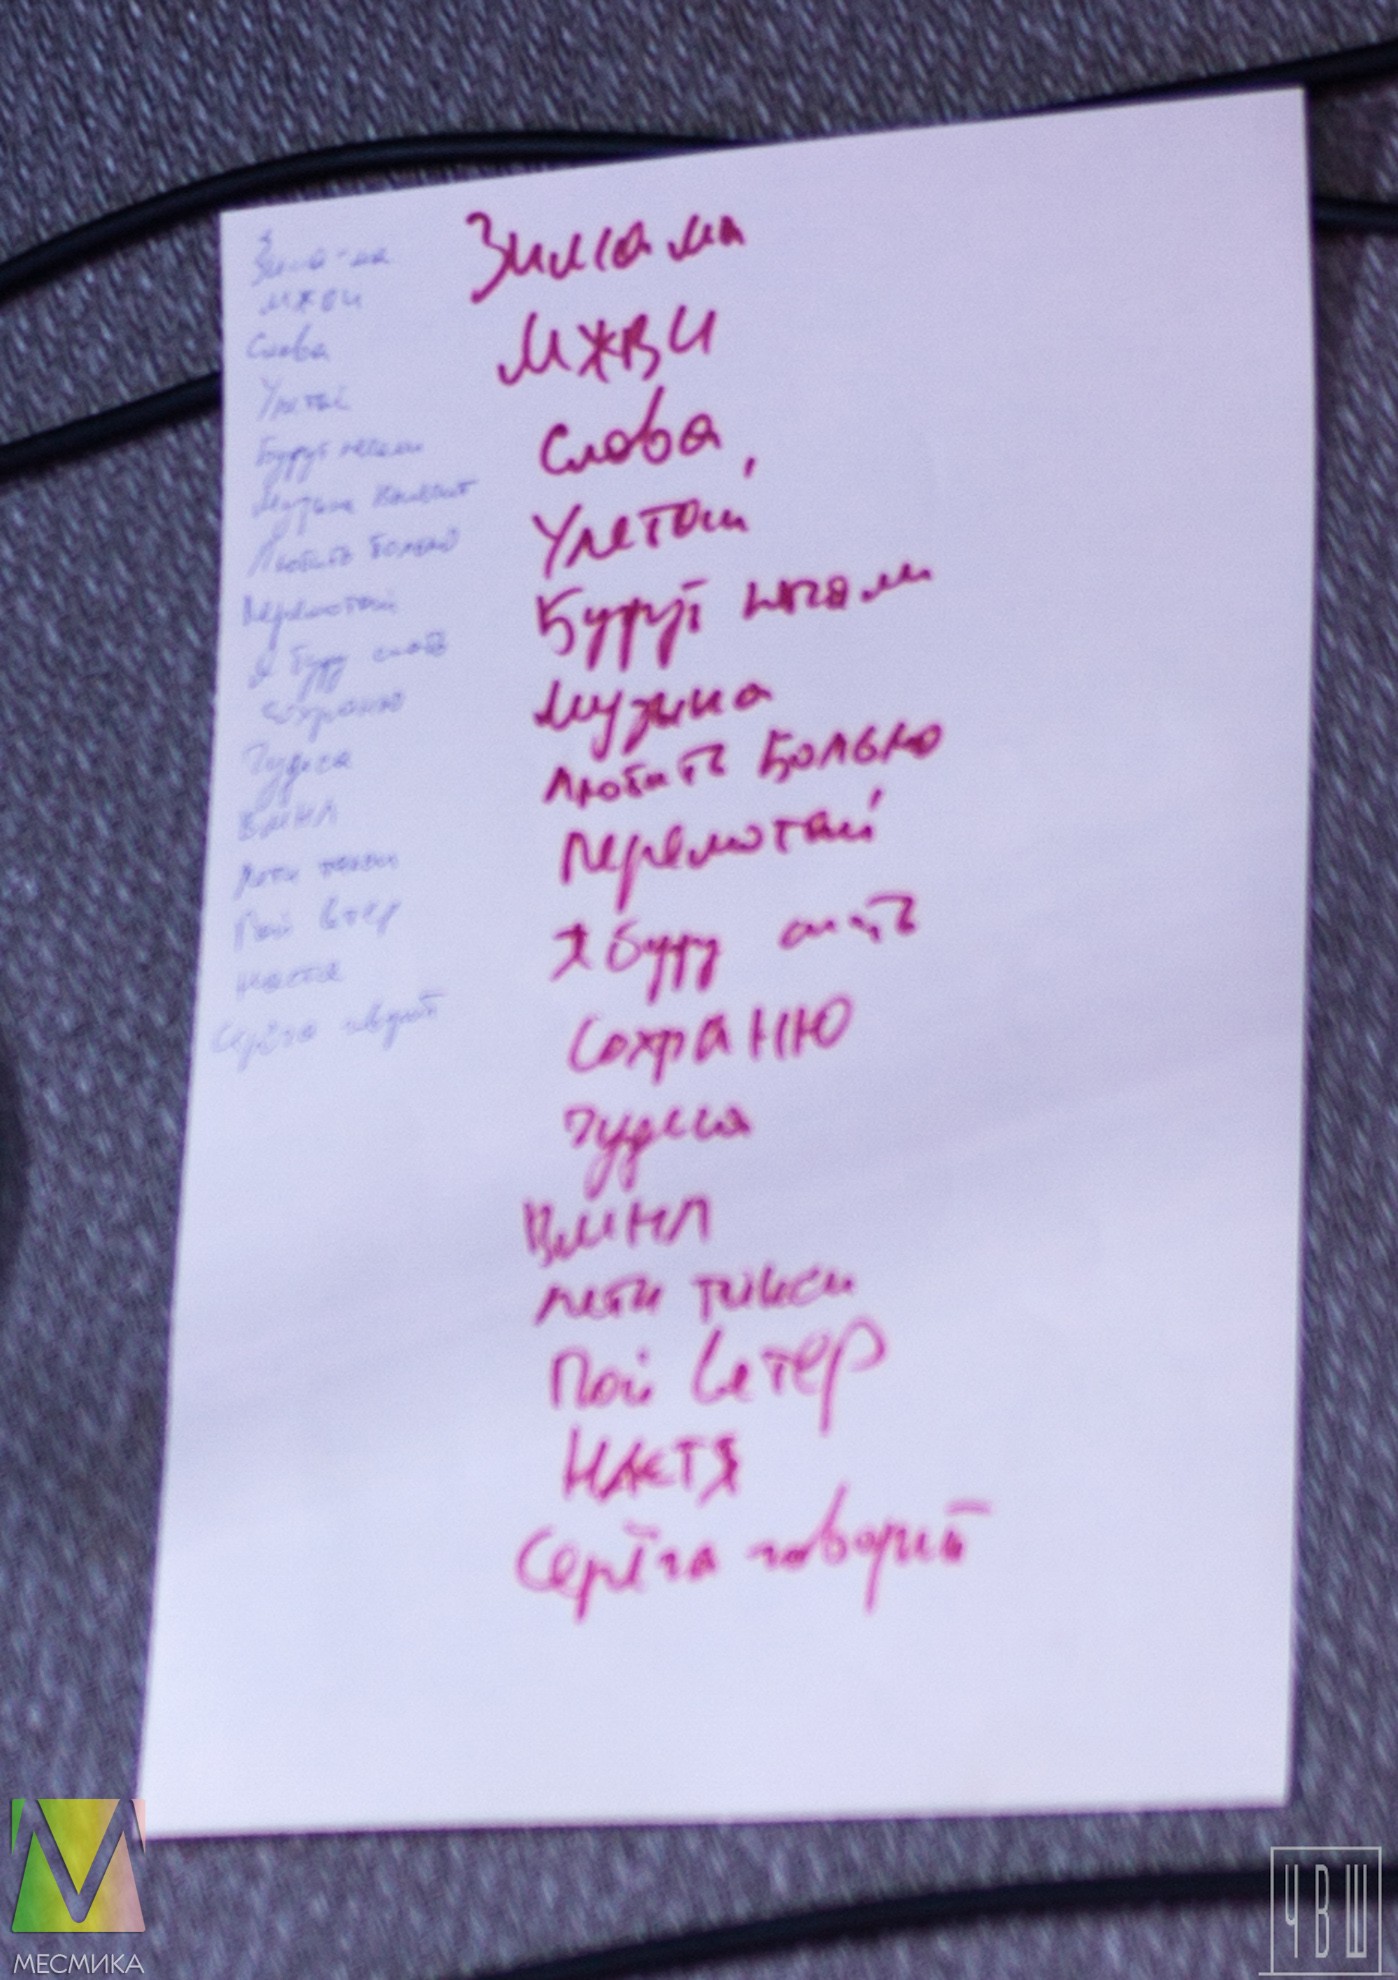 Зима-ма
МЖВИ
Слова
Улетай
Будут
Музыка
Любить больно
Перемотай
Я буду
Сохраню
Чудеса
ВМНЛ
Лети такси
Пой ветер
Настя
Серёга говорит
Зимама
МЖВИ
Слова
Улетай
Будут
Музыка
Любить Больно
Перемотай
Я буду
Сохраню
Чудеса
ВМНЛ
Лети такси
Пой Ветер
Настя
Серёга говорит
МЕСМИКА
ЧВШ